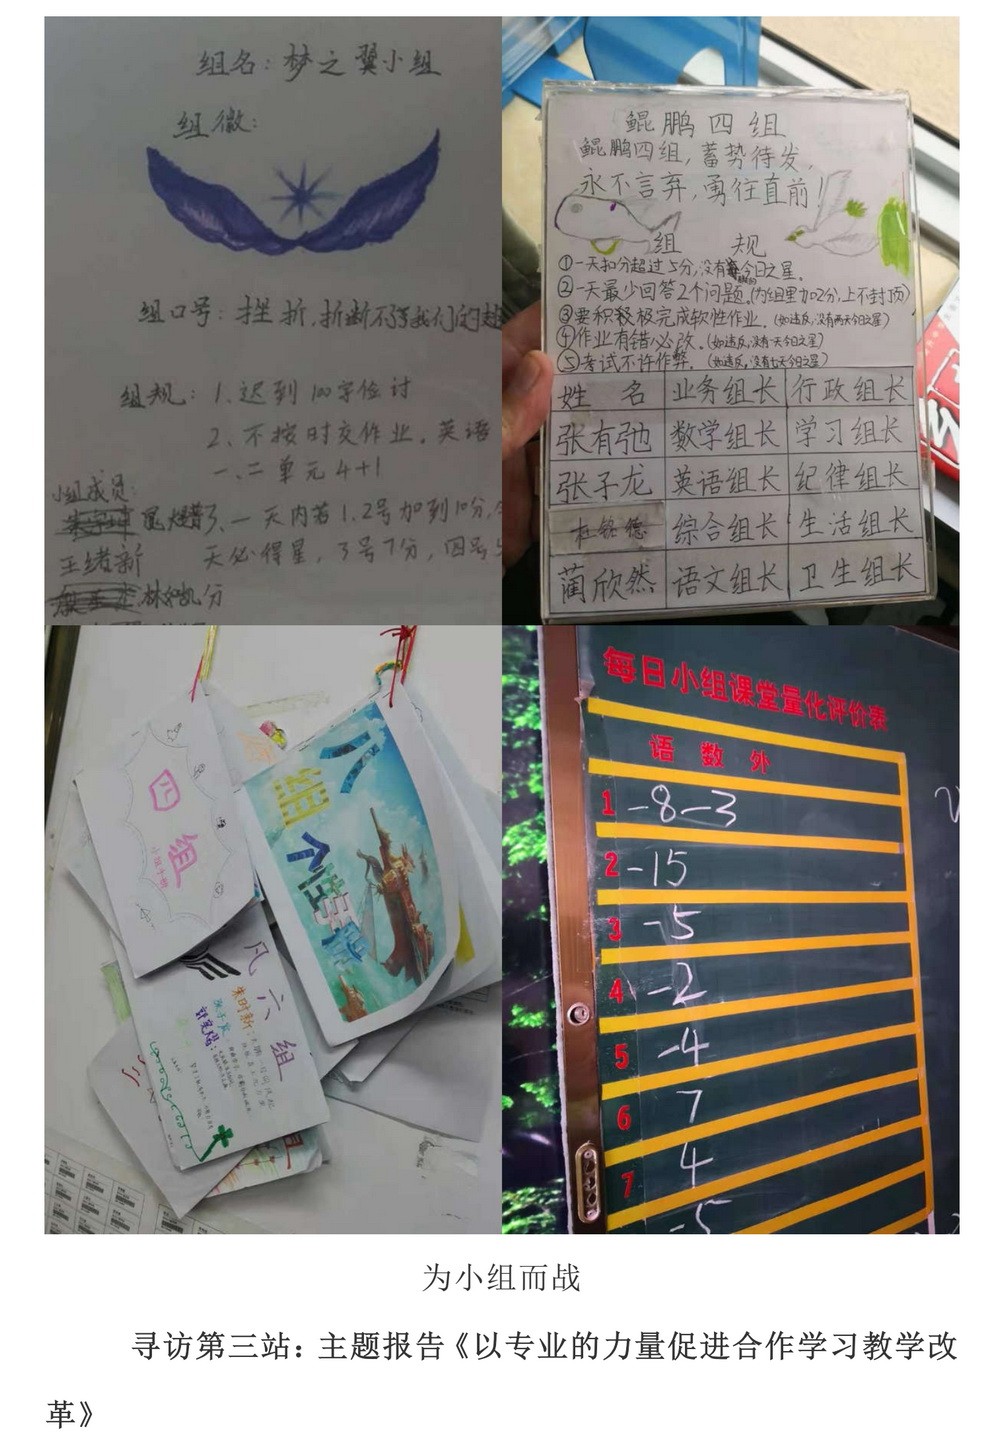 组名：梦之翼小组
组徽：
组口号：挫折，折断不了我们的
组规：1、迟到100字检讨
2、不按时交作业，英语
一、二单元4+1
小组成员：
3、一天内若1.2号加到10分，
王绪新
天必得星，3号7分，四号5
分
鲲鹏四组
鲲鹏四组，蓄势待发，
永不言弃，勇往直前！
组 规
①一天扣分超过5分，没有今日之星。
②一天最少回答2个问题。(为组里加2分，上不封顶)
③要积极完成软性作业。(如违反，没有两天今日之星)
④作业有错必改。(如违反，没有一天今日之星)
⑤考试不许作弊。(如违反，没有七天今日之星)
姓 名 业务组长 行政组长
张有弛 数学组长 学习组长
张子龙 英语组长 纪律组长
杜铭德 综合组长 生活组长
蔺欣然 语文组长 卫生组长
四组
八组
个性号
六组
每日小组课堂量化评价表
语 数 外
1 -8-3
2 -15
3 -5
4 -2
5 -4
6 7
7 4
-5
为小组而战
寻访第三站：主题报告《以专业的力量促进合作学习教学改
革》